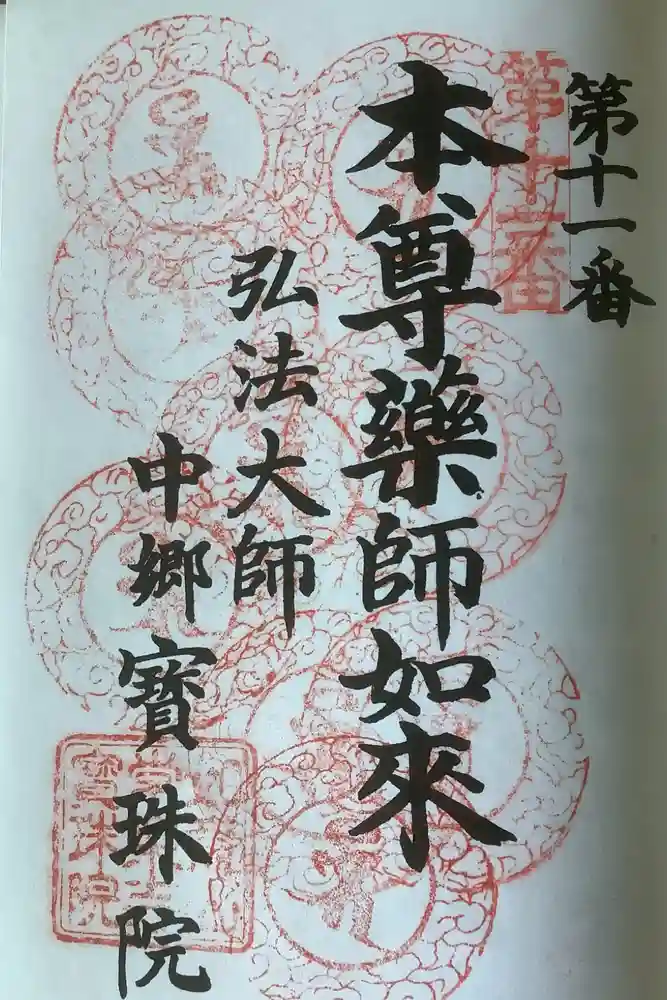 第十一番
第十一番
本尊薬師如來
弘法大師
中郷寳珠院
寳珠院